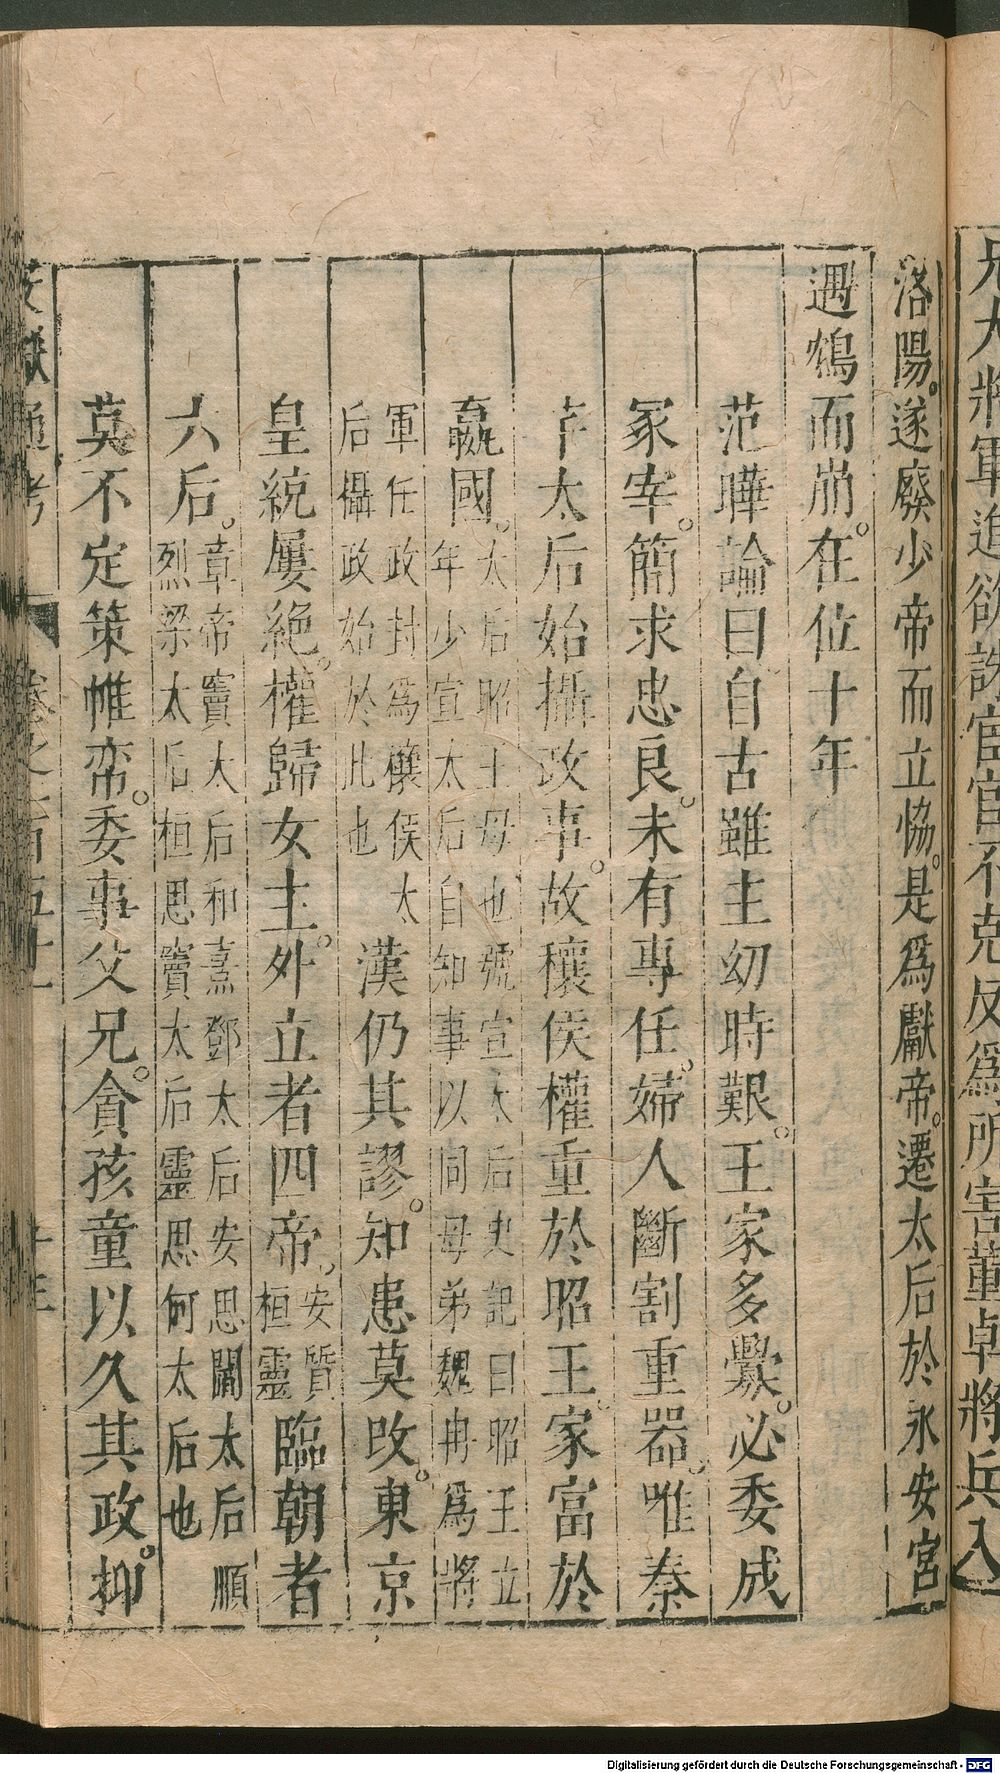 兄大將軍進欲誅宦官不克反爲所害董卓將兵入
洛陽。遂廢少帝而立協。是爲獻帝。遷太后於永安宮
遇鴆而崩。在位十年
范曄論曰。自古雖主幼時艱。王家多釁。必委成
冢宰。簡求忠良。未有專任。婦人斷割重器。唯秦
芈太后始攝政事。故穰侯權重於昭王。家富於
嬴國。太后昭王母也號宣太后史記曰昭王立
年少宣太后自知事以同母弟魏冉爲將
軍任政封爲穰侯太
后攝政始於此也
漢仍其謬。知患莫改。東京
皇統屢絕。權歸女主。外立者四帝。安質
桓靈
臨朝者
六后。章帝竇太后和熹鄧太后安思閻太后順
烈梁太后桓思竇太后靈思何太后也
莫不定策帷帟。委事父兄。貪孩童以久其政。抑
文獻通考
卷之二百五十一
十三
Digitalisierung gefördert durch die Deutsche Forschungsgemeinschaft - DFG